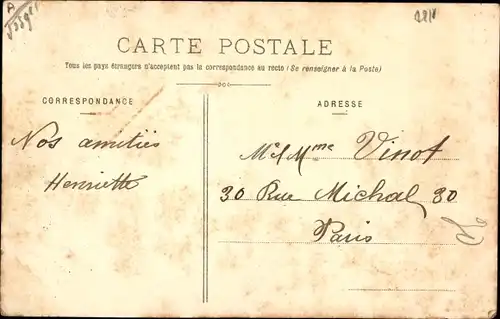 CARTE POSTALE
Tous les pays étrangers n'acceptent pas la correspondance au recto (Se renseigner à la Poste)
CORRESPONDANCE
ADRESSE
Nos amitiés
Henriette
Mr & Mme Vinot
30 Rue Michal 30
Paris